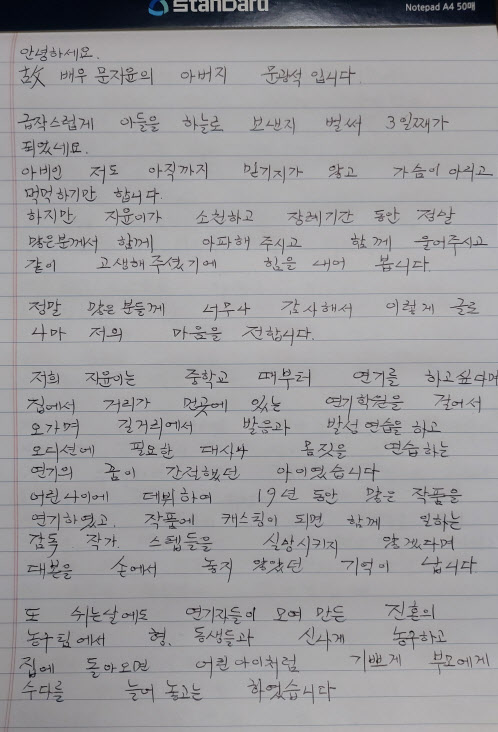 Standard
Notepad A4 50매
안녕하세요.
故 배우 문지윤의 아버지 문광석 입니다.
급작스럽게 아들을 하늘로 보낸지 벌써 3일째가
되었네요.
아비인 저도 아직까지 믿기지가 않고 가슴이 아리고
먹먹하기만 합니다.
하지만 지윤이가 소천하고 장례기간 동안 정말
많은분께서 함께 아파해 주시고 함께 울어주시고
같이 고생해 주셨기에 힘을 내어 봅니다
정말 많은 분들께 너무나 감사해서 이렇게 글로
나마 저의 마음을 전합니다.
저희 지윤이는 중학교 때부터 연기를 하고싶다며
집에서 거리가 먼곳에 있는 연기학원을 걸어서
오가며 길거리에서 발음과 발성 연습을 하고
오디션에 필요한 대사나 몸짓을 연습하는
연기의 꿈이 간절했던 아이였습니다
어린나이에 데뷔하여 19년 동안 많은 작품을
연기하였고, 작품에 캐스팅이 되면 함께 일하는
감독 작가 스텝들을 실망시키지 않겠다며
대본을 손에서 놓지 않았던 기억이 납니다
또 쉬는날에도 연기자들이 모여 만든 진혼의
농구팀에서 형, 동생들과 신나게 농구하고
집에 돌아오면 어린아이처럼 기쁘게 부모에게
수다를 늘어 놓고는 하였습니다